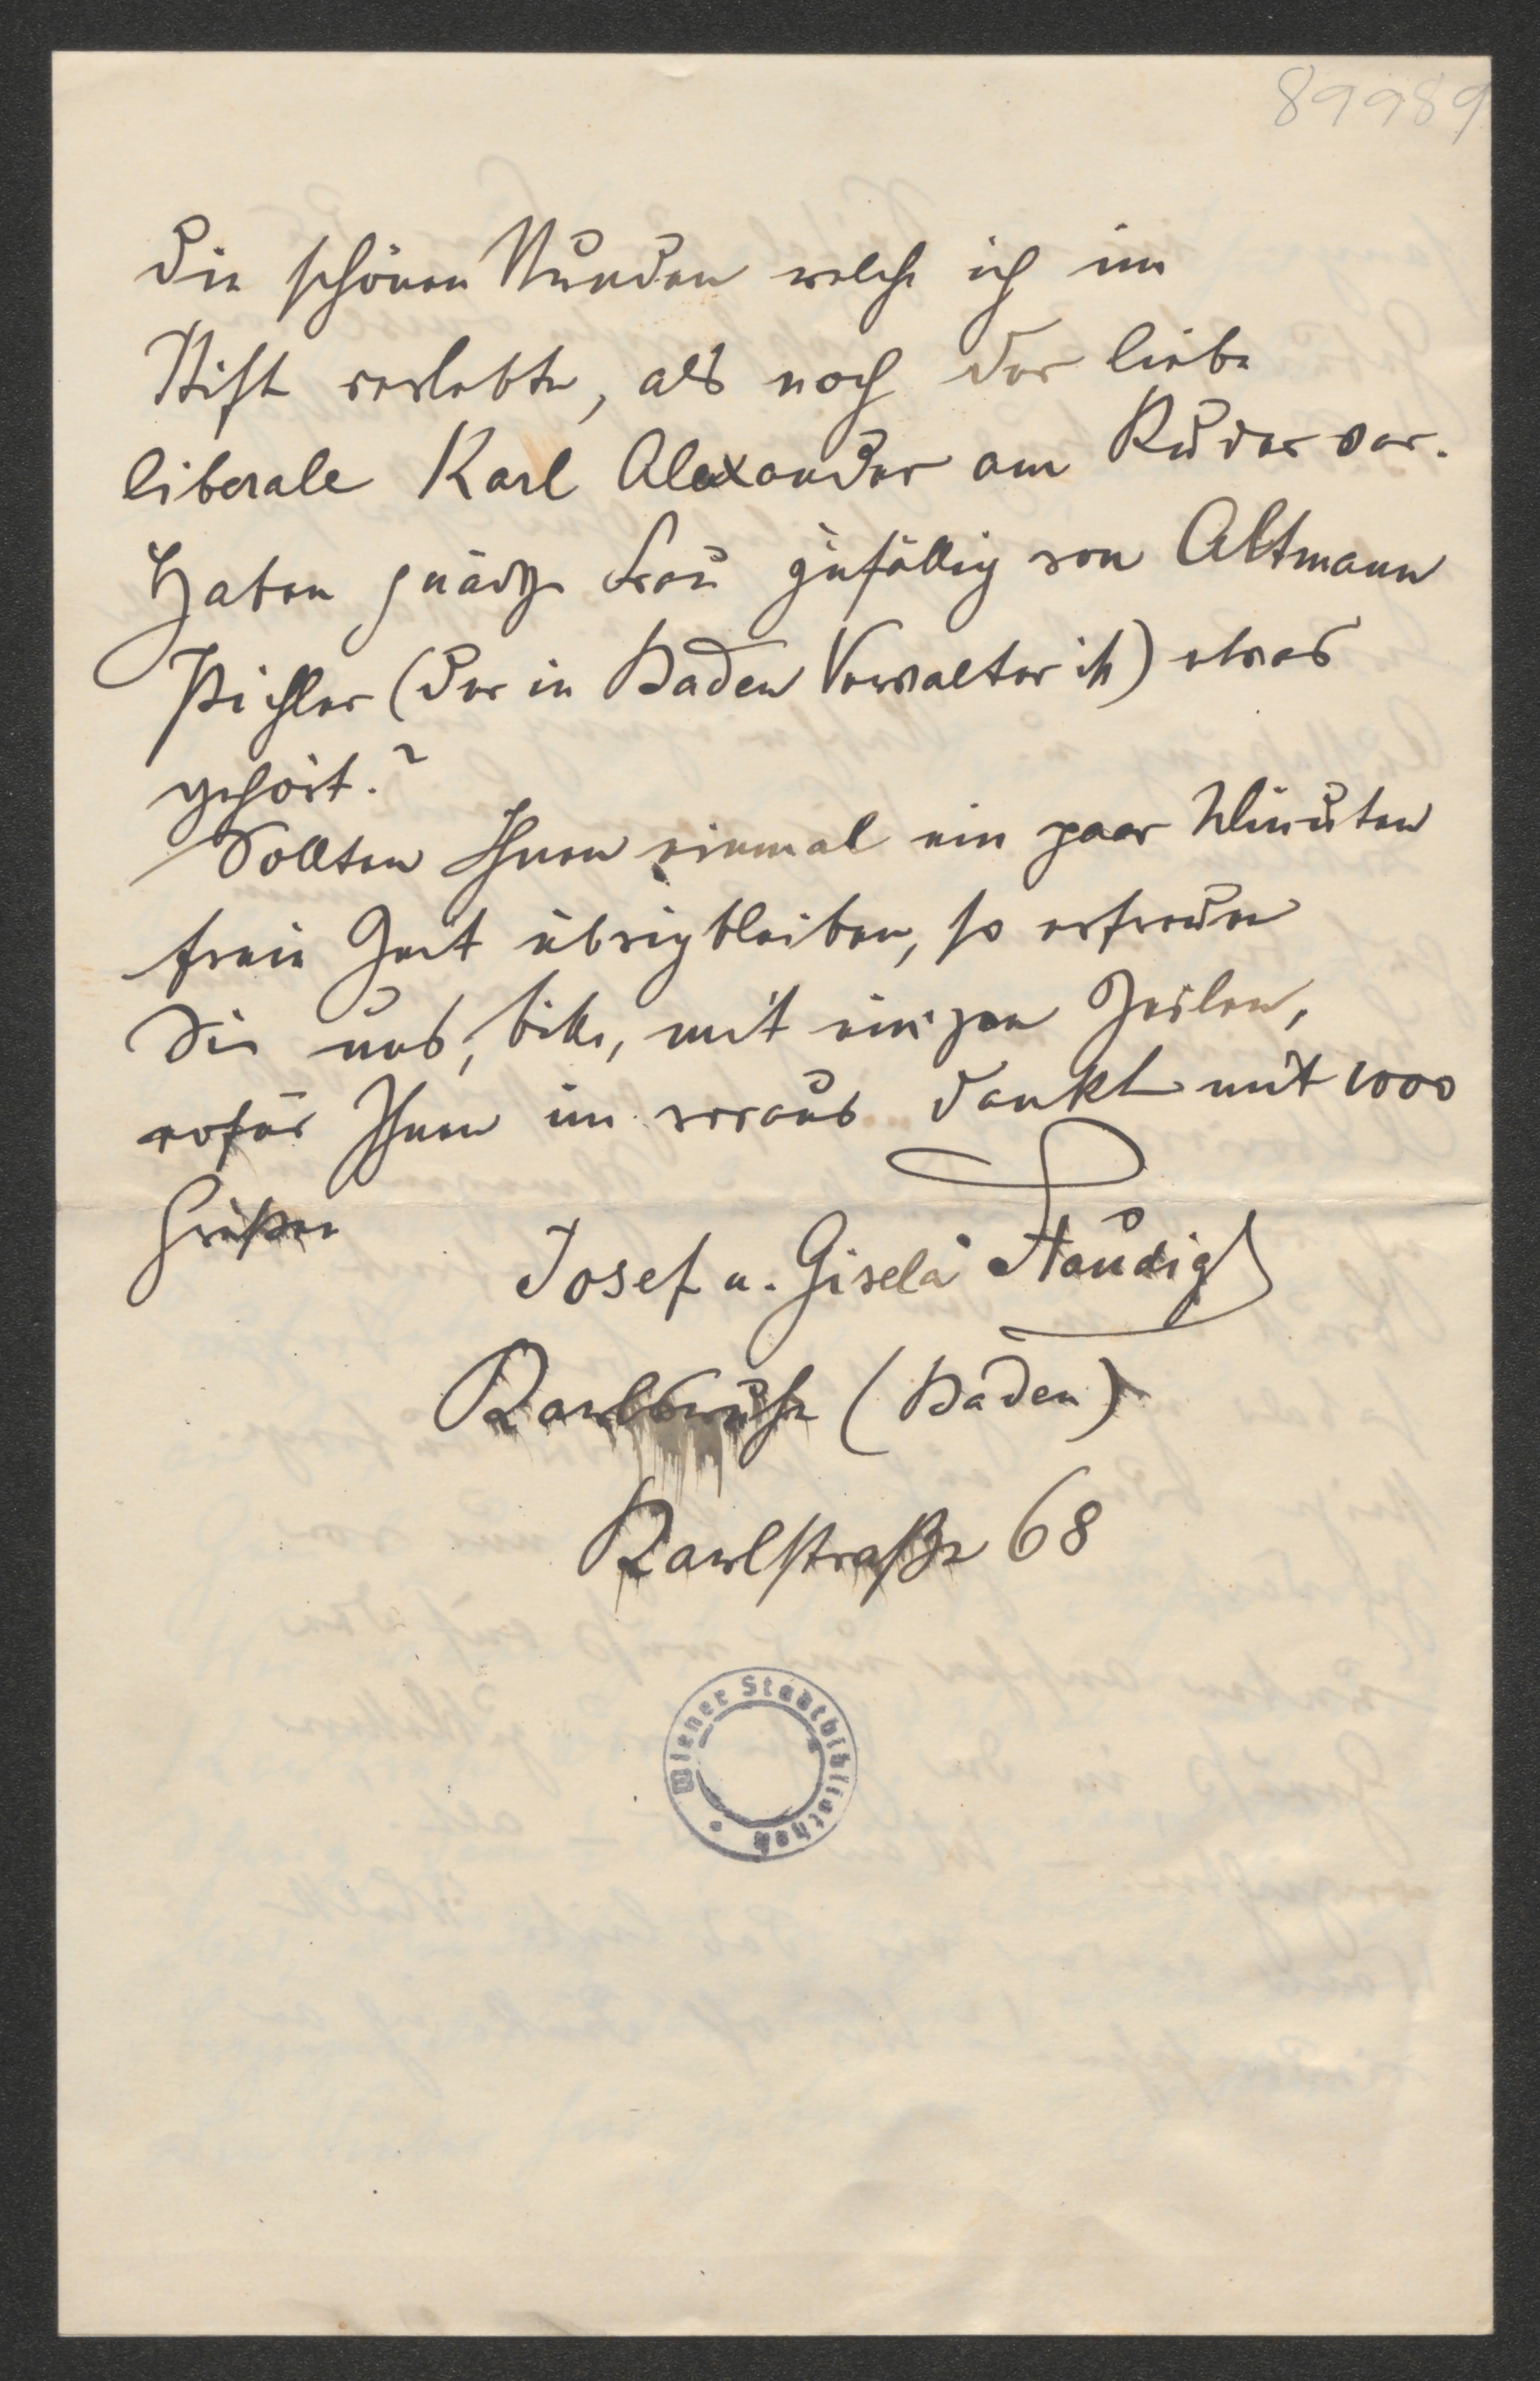 89989
die schönen Stunden welche ich im
Stift verlebte, als noch der liebe
liberale Karl Alexander am Ruder war.
Haben gnädge Frau zufällig von Altmann
Pichler (der in Baden Verwalter ist) etwas
gehört?
Sollten Ihnen einmal ein paar Minuten
freie Zeit übrigbleiben, so erfreuen
Sie uns, bitte, mit einigen Zeilen,
wofür Ihnen im voraus dankt mit 1000
Grüßen
Josef u. Gisela Staudigl
Karlsruhe (Baden)
Karlstraße 68
Wiener Stadtbibliothek